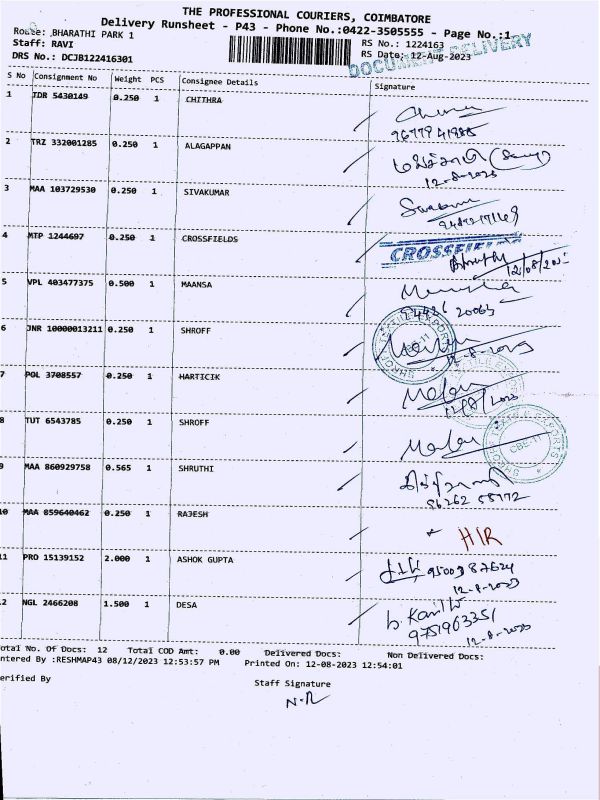 THE PROFESSIONAL COURIERS, COIMBATORE
Delivery Runsheet - P43 - Phone No.:0422-3505555 - Page No.:1
Route: ,BHARATHI PARK 1
RS No.: 1224163
Staff: RAVI
RS Date: 12-Aug-2023
DRS No.: DCJB122416301
DOCUMENT DELIVERY
S No Consignment No Weight PCS Consignee Details Signature
1 IDR 5430149 0.250 1 CHITHRA
2 TRZ 332001285 0.250 1 ALAGAPPAN
12-8-2023
3 MAA 103729530 0.250 1 SIVAKUMAR
4 MTP 1244697 0.250 1 CROSSFIELDS
CROSSFIELDS
5 VPL 403477375 0.500 1 MAANSA
6 JNR 10000013211 0.250 1 SHROFF
12-8-2023
7 POL 3708557 0.250 1 HARTICIK
12/8/2023
8 TUT 6543785 0.250 1 SHROFF
9 MAA 860929758 0.565 1 SHRUTHI
10 MAA 859640462 0.250 1 RAJESH
H/R
11 PRO 15139152 2.000 1 ASHOK GUPTA
9500987624
12-8-2023
12 NGL 2466208 1.500 1 DESA
9751963351
12-8-2023
otal No. Of Docs: 12 Total COD Amt: 0.00 Delivered Docs: Non Delivered Docs:
ntered By :RESHMAP43 08/12/2023 12:53:57 PM Printed On: 12-08-2023 12:54:01
erified By
Staff Signature
N.R